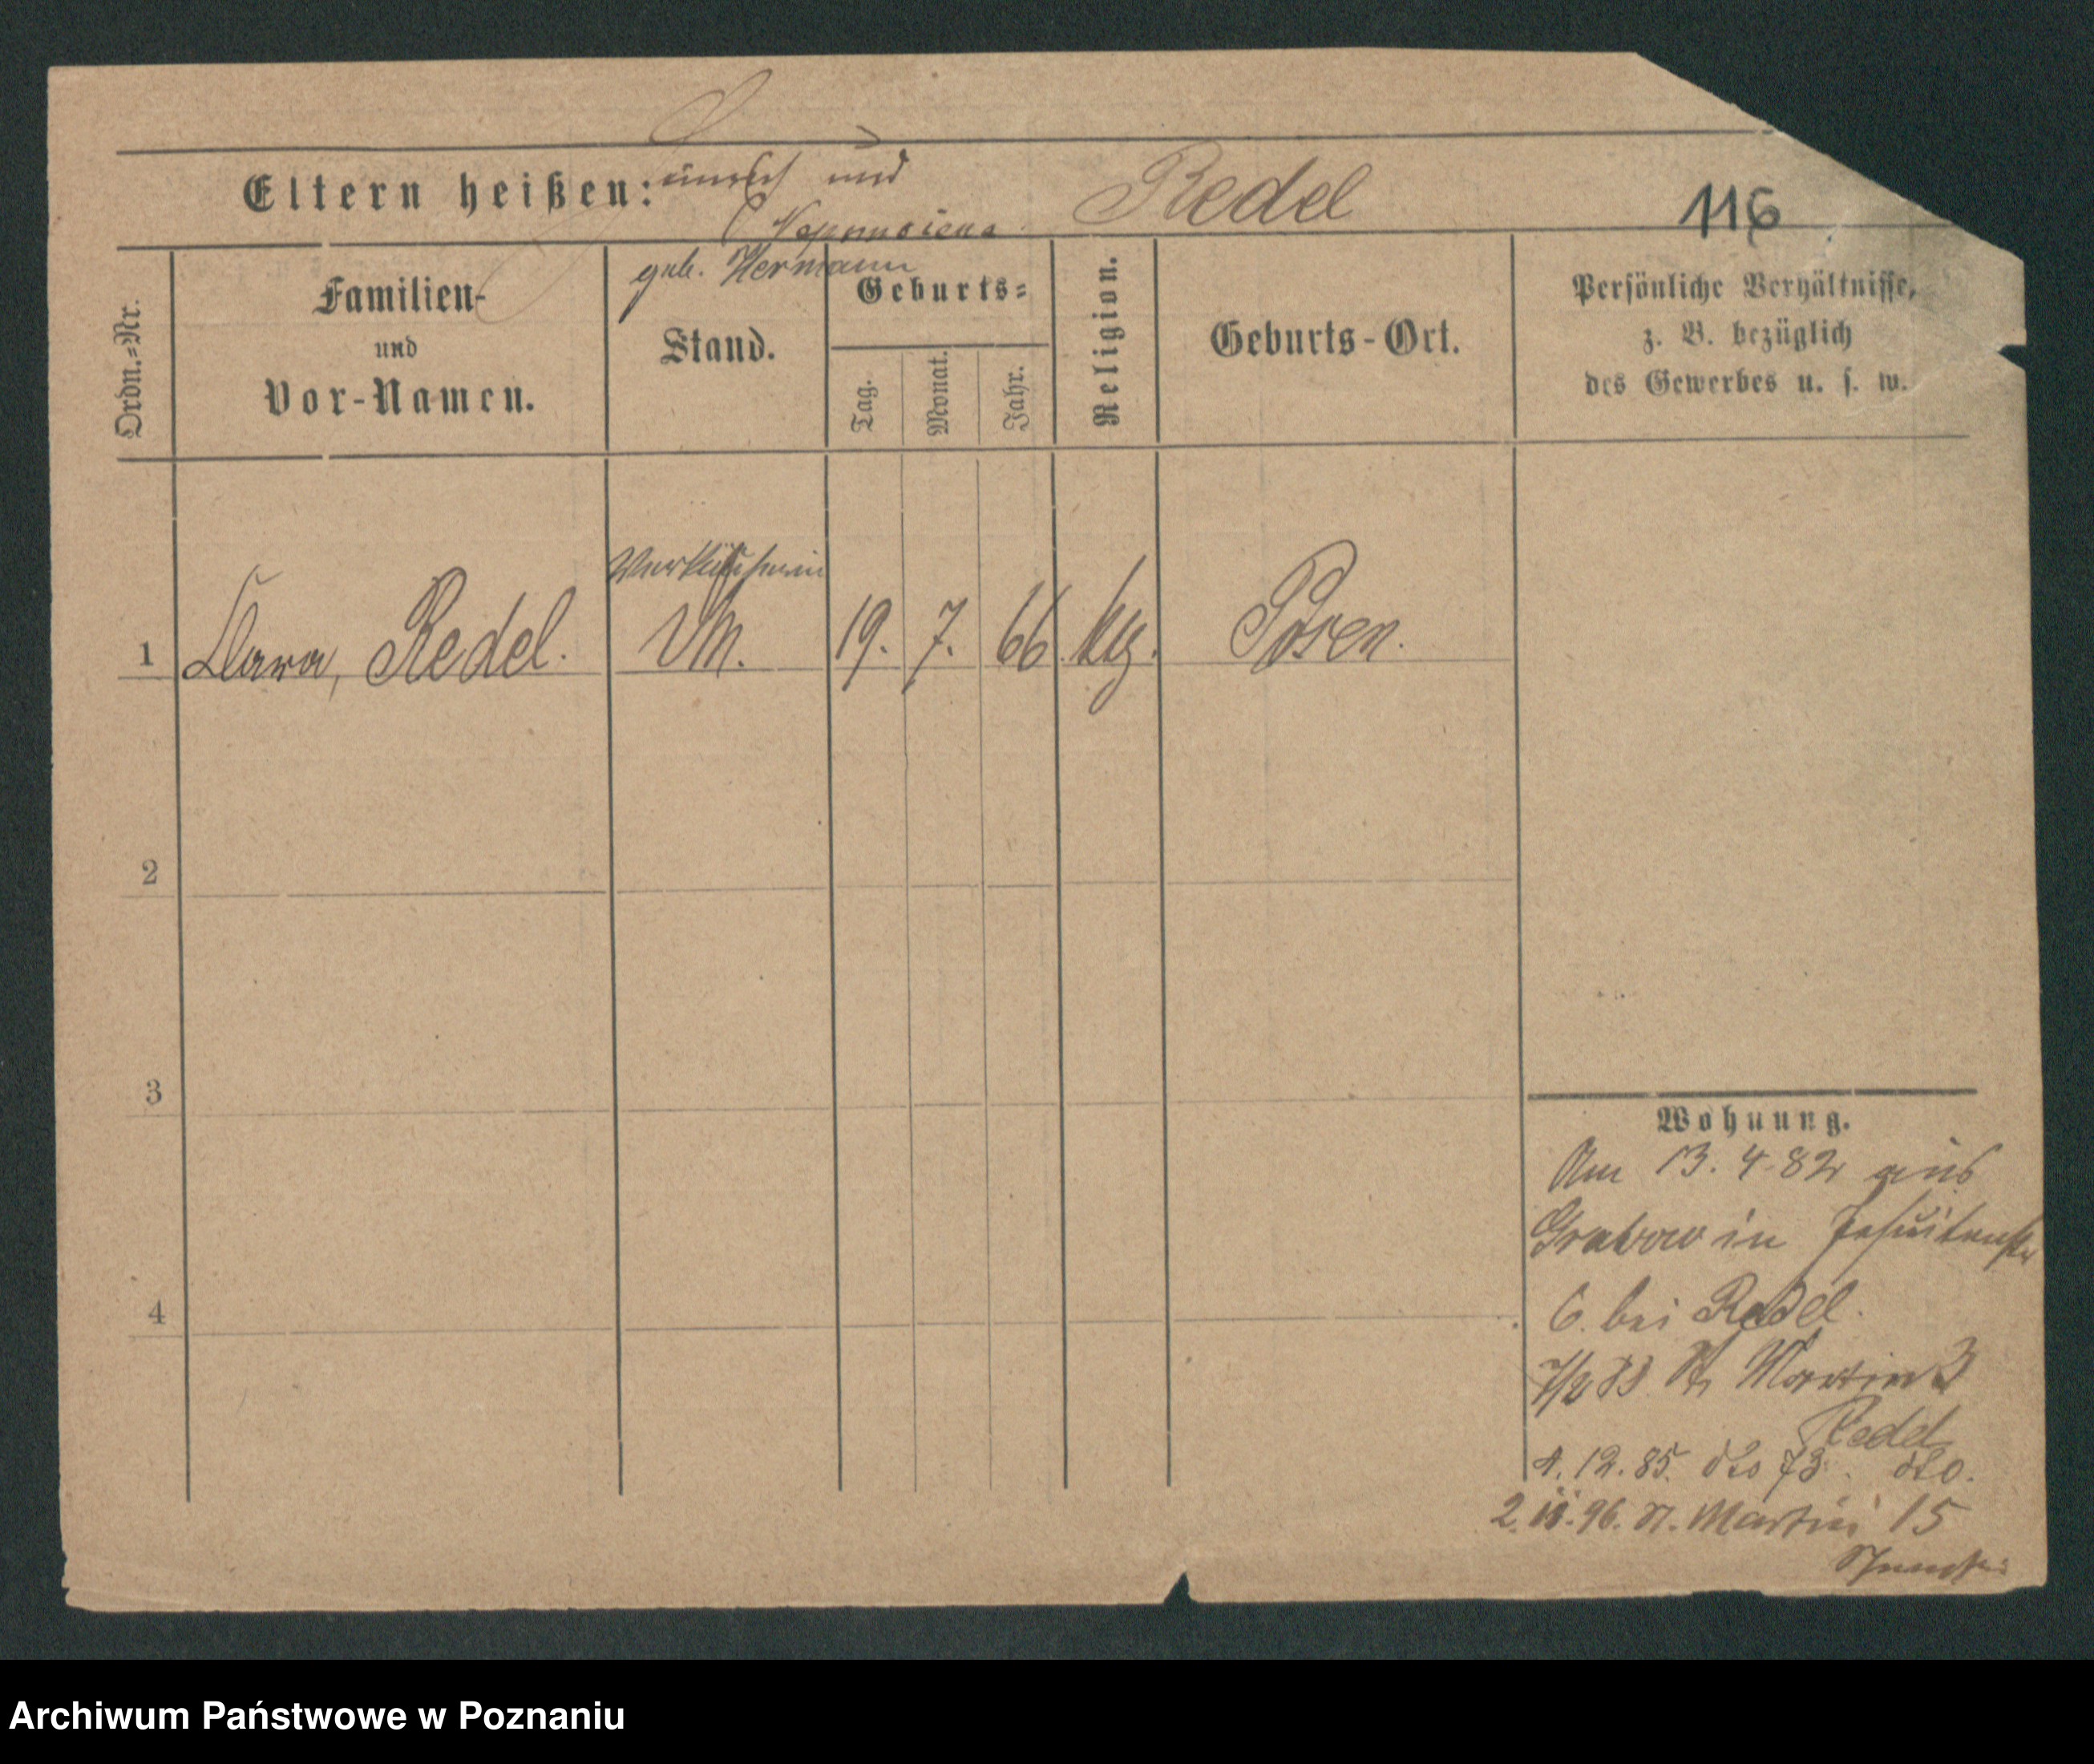 Eltern heißen: und Redel 116
Nepomucena
geb. Hermann
Ordn.=Nr.
Familien-
und
Vor-Namen.
Stand.
Geburts=
Tag.
Monat.
Jahr.
Religion.
Geburts-Ort.
Persönliche Verhältnisse,
z. B. bezüglich
des Gewerbes u. s. w.
Verkäuferin
1 Clara, Redel. 19. 7. 66 Posen.
2
3
4
Wohnung.
Am 13. 4. 82 aus
Grabow in Jesuitenstr
6. bei Redel.
7/2 83. St. Martin 3
Redel
4. 12. 85. dto 73. dto.
2. 11. 96. St. Martin 15
Archiwum Państwowe w Poznaniu